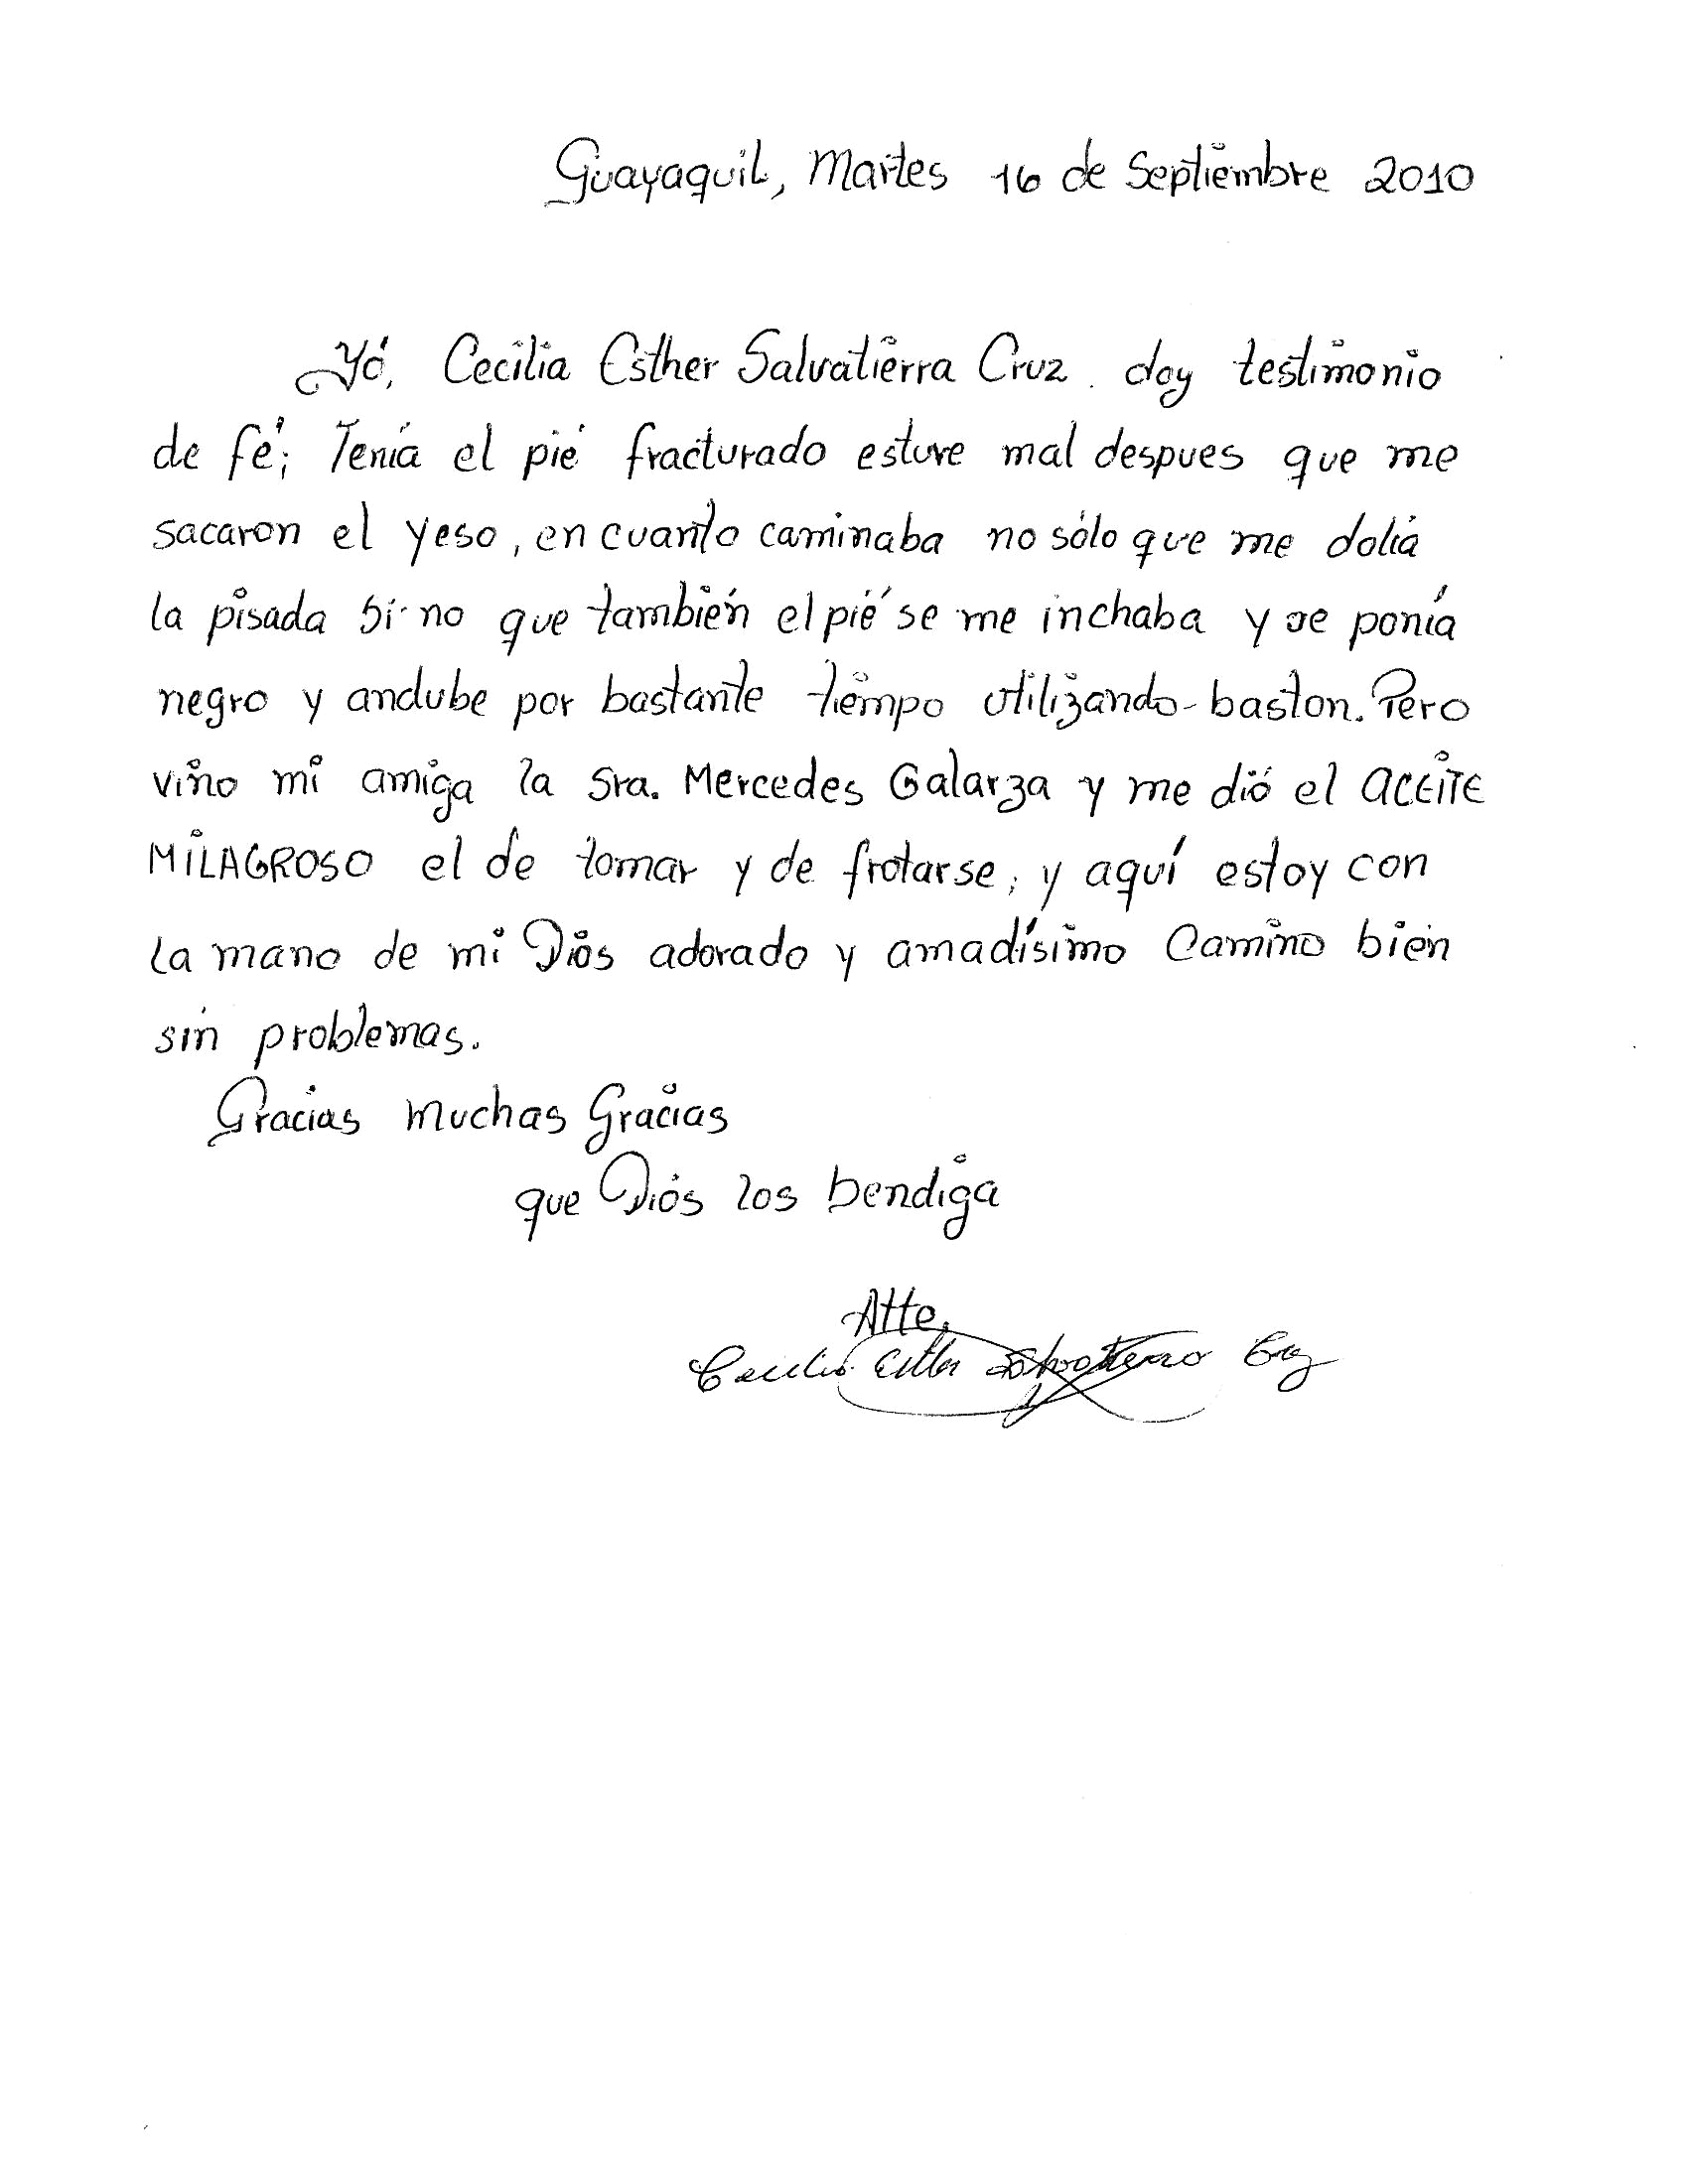 Guayaquil, Martes 16 de Septiembre 2010
Yó, Cecilia Esther Salvatierra Cruz. doy testimonio
de fé; Tenía el pié fracturado estuve mal despues que me
sacaron el yeso, en cuanto caminaba no sólo que me dolía
la pisada si-no que también el pié se me inchaba y se ponía
negro y andube por bastante tiempo utilizando baston. Pero
vino mi amiga la Sra. Mercedes Galarza y me dió el ACEITE
MILAGROSO el de tomar y de frotarse; y aquí estoy con
la mano de mi Diós adorado y amadísimo Camino bien
sin problemas.
Gracias Muchas Gracias
que Diós los bendiga
Atte,
Cecilia Esther Salvatierra Cruz